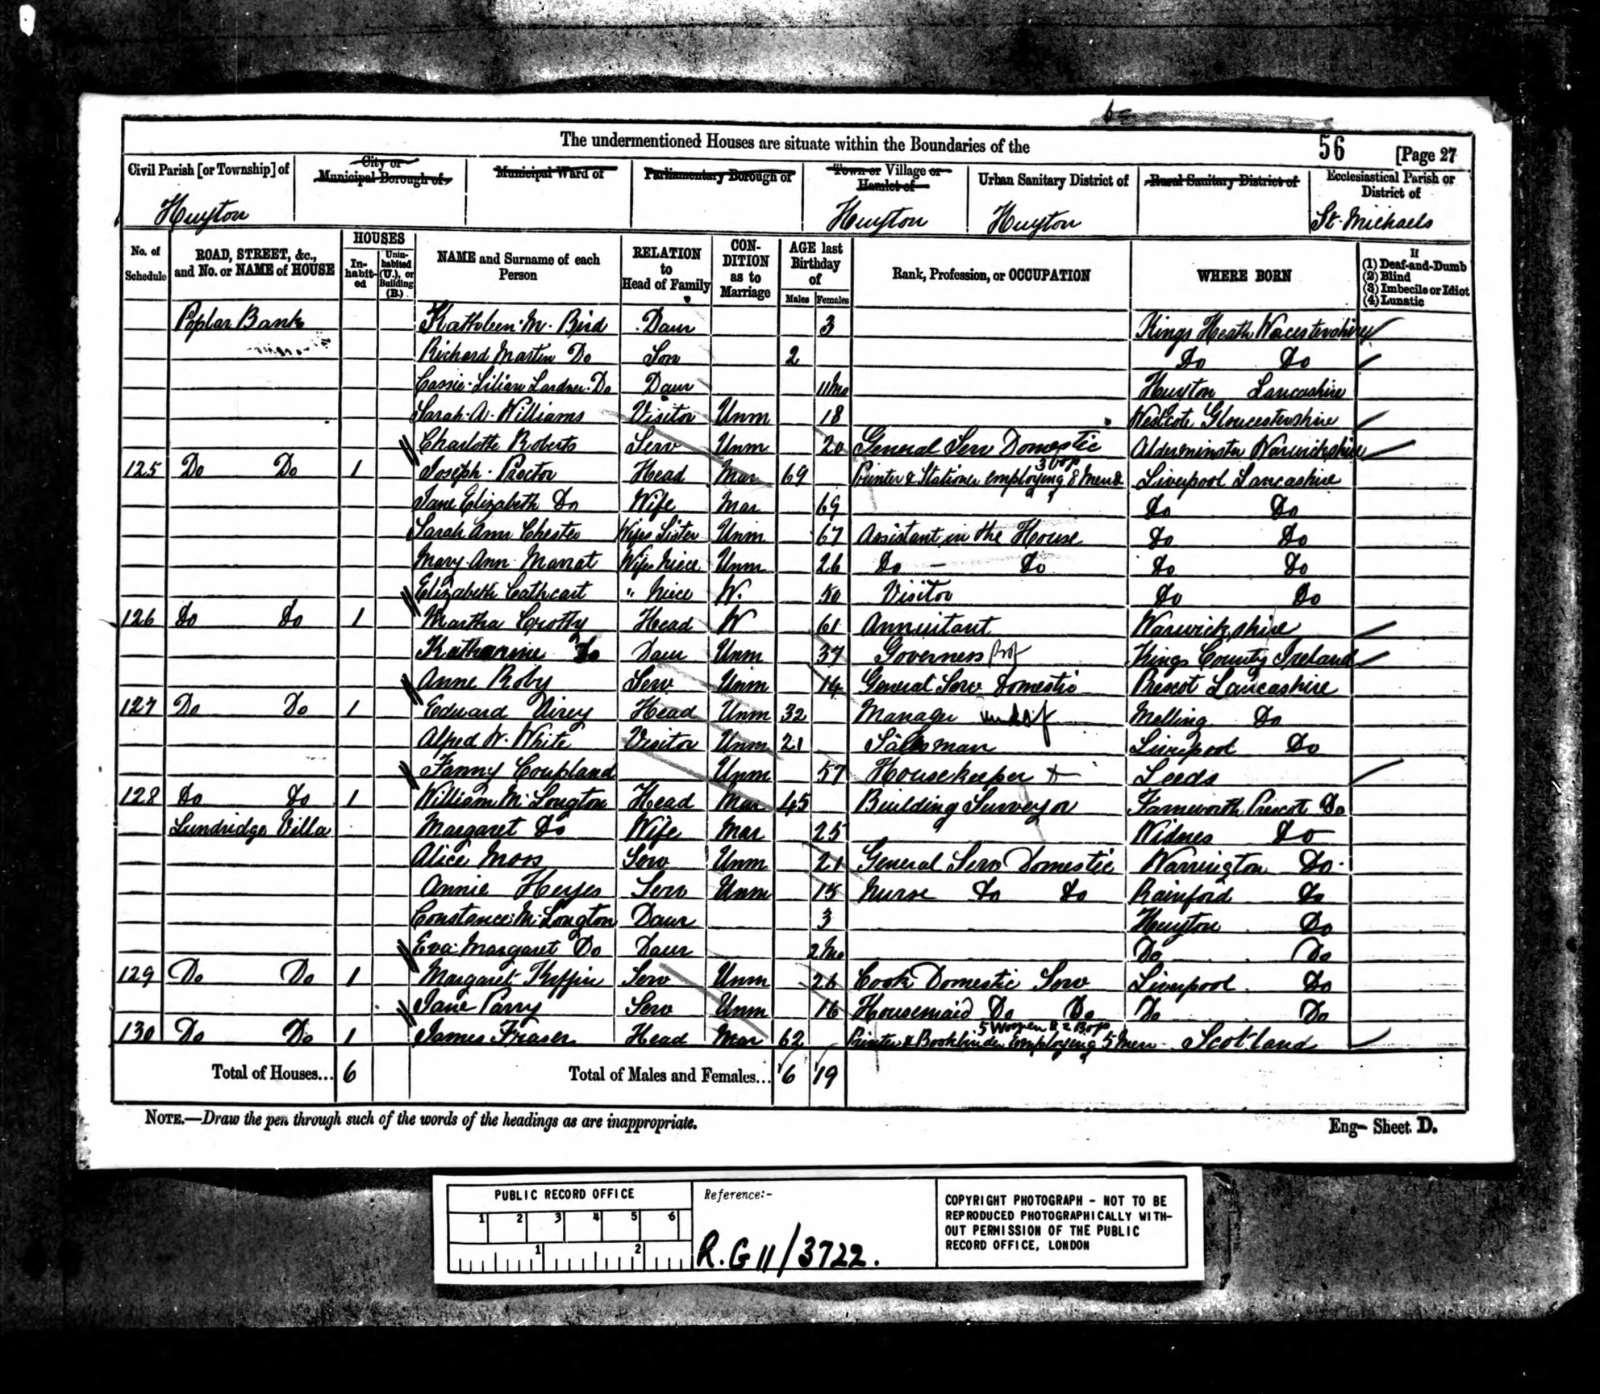 The undermentioned Houses are situate within the Boundaries of the 56 [Page 27
Civil Parish [or Township] of City or Municipal Borough of Municipal Ward of Parliamentary Borough of Town or Village or Hamlet of Urban Sanitary District of Rural Sanitary District of Ecclesiastical Parish or District of
Huyton Huyton Huyton St. Michaels
No. of Schedule ROAD, STREET, &c., and No. or NAME of HOUSE HOUSES Inhabited Uninhabited (U.), or Building (B.) NAME and Surname of each Person RELATION to Head of Family CONDITION as to Marriage AGE last Birthday of Males Females Rank, Profession, or OCCUPATION WHERE BORN If (1) Deaf-and-Dumb (2) Blind (3) Imbecile or Idiot (4) Lunatic
Poplar Bank Kathleen M. Bird Daur 3 Kings Heath Worcestershire
Richard Martin Do Son 2 Do Do
Cassie Lilian Lardner Do Daur 11mo Huyton Lancashire
Sarah A. Williams Visitor Unm 18 Westcote Gloucestershire
Charlotte Roberts Serv Unm 20 General Serv Domestic Alderminster Warwickshire
125 Do Do 1 Joseph Proctor Head Mar 69 Printer & Stationer employing 8 men & 3 boys Liverpool Lancashire
Jane Elizabeth Do Wife Mar 69 Do Do
Sarah Ann Chester Wifes Sister Unm 67 Assistant in the House Do Do
Mary Ann Marrat Wifes Niece Unm 26 Do - Do Do Do
Elizabeth Cathcart " Niece W. 50 Visitor Do Do
126 Do Do 1 Martha Crotty Head W 61 Annuitant Warwickshire
Katharine Do Daur Unm 37 Governess Kings County Ireland
Anne Roby Serv Unm 14 General Serv Domestic Prescot Lancashire
127 Do Do 1 Edward Airey Head Unm 32 Manager Melling Do
Alfred W. White Visitor Unm 21 Salesman Liverpool Do
Fanny Coupland Unm 57 Housekeeper Leeds
128 Do Do 1 William M. Longton Head Mar 45 Building Surveyor Farnworth Prescot Do
Lundridge Villa Margaret Do Wife Mar 25 Widnes Do
Alice Moss Serv Unm 21 General Serv Domestic Warrington Do
Annie Heyes Serv Unm 15 Nurse Do Do Rainford Do
Constance M. Longton Daur 3 Huyton Do
Eva Margaret Do Daur 2mo Do Do
129 Do Do 1 Margaret Serv Unm 26 Cook Domestic Serv Liverpool Do
Jane Parry Serv Unm 16 Housemaid Do Do Do Do
130 Do Do 1 James Fraser Head Mar 62 Printer & Bookbinder employing 5 men 5 Women & 2 Boys Scotland
Total of Houses... 6 Total of Males and Females... 6 19
NOTE.—Draw the pen through such of the words of the headings as are inappropriate.
Eng— Sheet D.
PUBLIC RECORD OFFICE
1 2 3 4 5 6
1 2
Reference:-
R.G 11/3722.
COPYRIGHT PHOTOGRAPH - NOT TO BE
REPRODUCED PHOTOGRAPHICALLY WITH-
OUT PERMISSION OF THE PUBLIC
RECORD OFFICE, LONDON